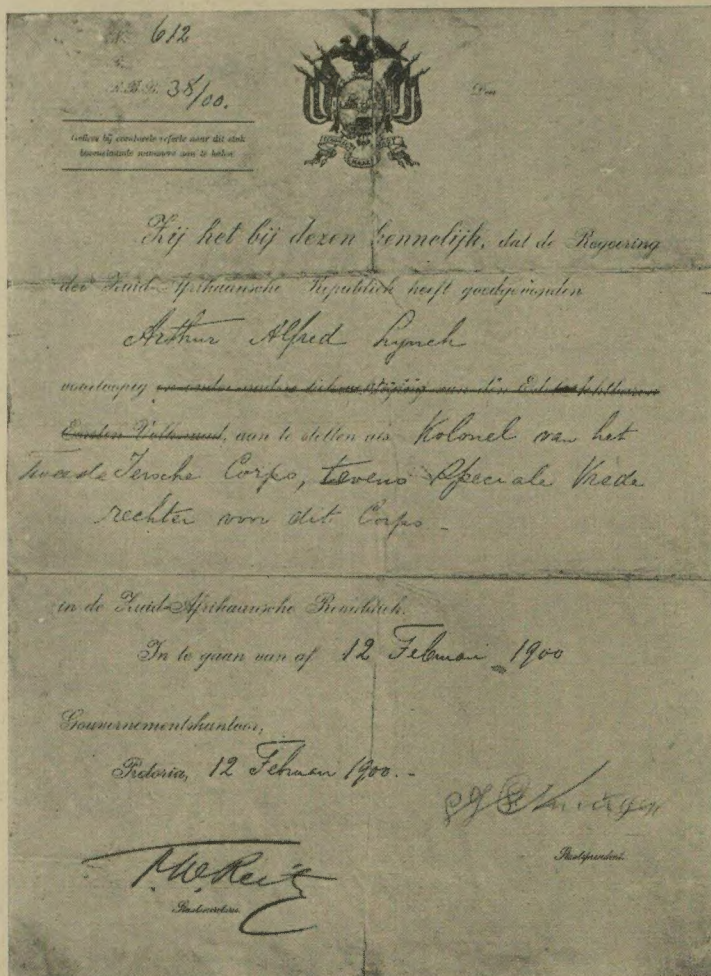 N. 612
R.B.B. 38/00.
Gelieve bij eventueele referte naar dit stuk
bovenstaande nummers aan te halen
Den
Zij het bij dezen kennelijk, dat de Regeering
der Zuid-Afrikaansche Republiek heeft goedgevonden
Arthur Alfred Lynch
voorloopig en onder nadere bekrachtiging van den Ed. Achtbaren
Eersten Volksraad, aan te stellen als Kolonel van het
tweede Iersche Corps, tevens Speciale Vrede
rechter voor dit Corps -
in de Zuid-Afrikaansche Republiek.
In te gaan van af 12 Februari 1900
Gouvernementskantoor,
Pretoria, 12 Februari 1900. -
F.W. Reitz
Staatssecretaris.
Staatspresident.